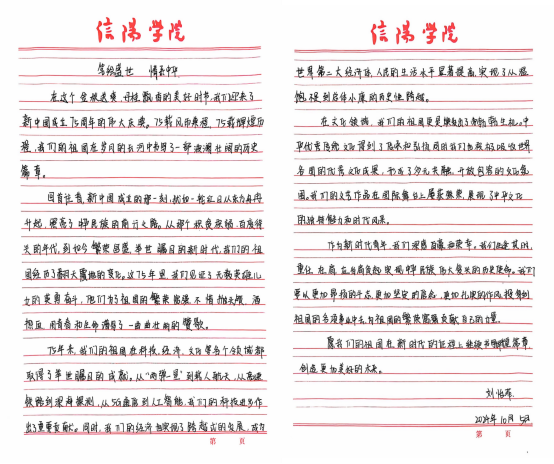 信阳学院
笔绘盛世 情系中华
在这个金秋送爽、丹桂飘香的美好时节,我们迎来了
新中国成立75周年的伟大庆典。75载风雨兼程,75载辉煌历
程,我们的祖国在岁月的长河中书写了一部波澜壮阔的历史
篇章。
回首往昔,新中国成立的那一刻,犹如一轮红日从东方冉冉
升起,照亮了中华民族的前行之路。从那个积贫积弱、百废待
兴的年代,到如今繁荣昌盛、举世瞩目的新时代,我们的祖
国经历了翻天覆地的变化。这75年里,我们见证了无数英雄儿
女的英勇奋斗,他们为了祖国的繁荣富强不惜抛头颅、洒
热血,用青春和生命谱写了一曲曲壮丽的赞歌。
75年来,我们的祖国在科技、经济、文化等各个领域都
取得了举世瞩目的成就。从“两弹一星”到载人航天,从高速
铁路到深海探测,从5G通信到人工智能,我们的科技进步作
出了重要贡献。同时,我们的经济也实现了跨越式的发展,成为
第 页
信阳学院
世界第二大经济体,人民的生活水平显著提高,实现了从温
饱到总体小康的历史性跨越。
在文化领域,我们的祖国更是焕发出了勃勃生机。中
华优秀传统文化得到了传承和弘扬,同时我们也积极吸收世界
各国的优秀文化成果,形成了多元共融、开放包容的文化氛
围。我们的文艺作品在国际舞台上屡获殊荣,展现了中华文化
的独特魅力和时代风采。
作为新时代青年,我们深感自豪和荣幸。我们
重任在肩,在当前实现中华民族伟大复兴的历史使命。我们
要以更加昂扬的斗志、更加坚定的信念、更加扎实的作风,投身到
祖国的各项事业中去,为祖国的繁荣富强贡献自己的力量。
愿我们的祖国在新时代的征程上继续书写辉煌篇章
创造更加美好的未来。
2024年10月5日
第 页